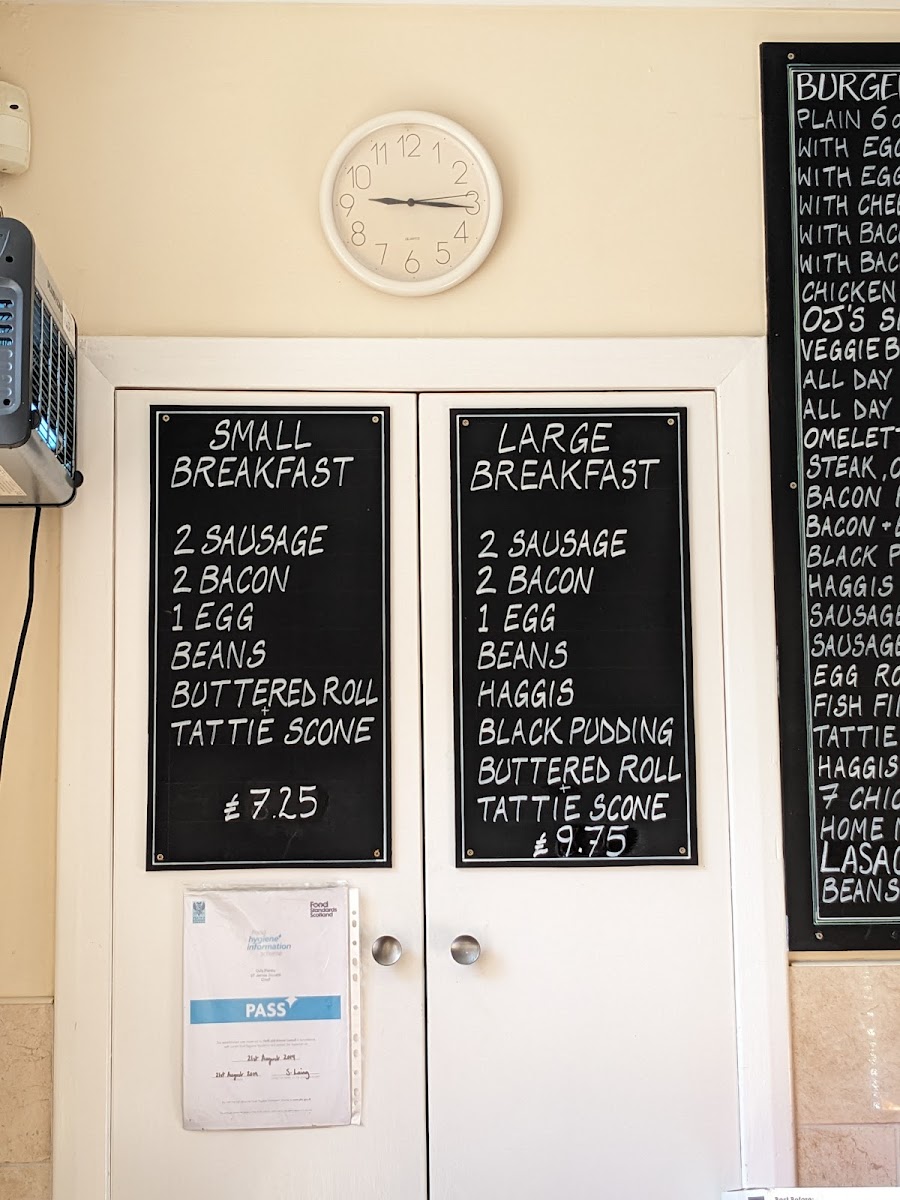 12
1
2
3
4
5
6
7
8
9
10
11
QUARTZ
SMALL
BREAKFAST
2 SAUSAGE
2 BACON
1 EGG
BEANS
BUTTERED ROLL
+
TATTIE SCONE
£7.25
LARGE
BREAKFAST
2 SAUSAGE
2 BACON
1 EGG
BEANS
HAGGIS
BLACK PUDDING
BUTTERED ROLL
+
TATTIE SCONE
£9.75
PLAIN 6
WITH
WITH
WITH
WITH
WITH
CHICKEN
OJ'S
ALL DAY
ALL DAY
STEAK,
BACON
BACON +
BLACK
HAGGIS
EGG
FISH
TATTIE
7
HOME
BEANS
Food
Standards
Scotland
food
hygiene
information
scheme
PASS
21st August 2019
21st August 2019 S. Laing